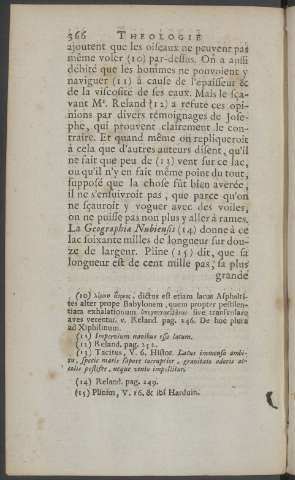 366 THEOLOGIE
ajoutent que les oiseaux ne peuvent pas
même voler (10) par-dessus. On a aussi
débité que les hommes ne pouvoient y
naviguer (11) à cause de l'épaisseur &
de la viscosité de ses eaux. Mais le sça-
vant Mr. Reland (12) a refuté ces opi-
nions par divers témoignages de Jose-
phe, qui prouvent clairement le con-
traire. Et quand même on repliqueroit
à cela que d'autres auteurs disent, qu'il
ne fait que peu de (13) vent sur ce lac,
ou qu'il n'y en fait même point du tout,
supposé que la chose fût bien averée,
il ne s'ensuivroit pas, que parce qu'on
ne sçauroit y voguer avec des voiles,
on ne puisse pas non plus y aller à rames.
La Geographia Nubiensis (14) donne à ce
lac soixante milles de longueur sur dou-
ze de largeur. Pline (15) dit, que sa
longueur est de cent mille pas, sa plus
grande
(10) dictus est etiam lacus Asphalti-
tes alter prope Babylonem, quem propter pestilen-
tiam exhalationum sive transvolare
aves verentur. v. Reland. pag. 246. De hoc plura
ad Xiphilinum.
(11) Impervium navibus esse lacum.
(12) Reland. pag. 252.
(13) Tacitus, V. 6. Histor. Latus immenso ambi-
tu, specie maris sapore corruptior, gravitate odoris ac-
colis pestifer, neque vento impellitur.
(14) Reland. pag. 249.
(15) Plinius, V. 16. & ibi Harduin.